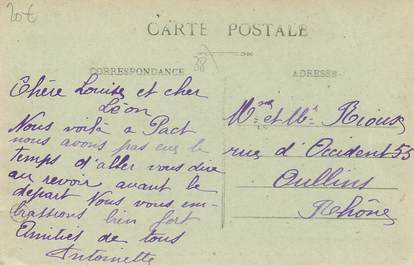 20€
CARTE POSTALE
38
CORRESPONDANCE
ADRESSE
Chère Louise et cher
Léon
Nous voilà a Pact
nous avons pas eu le
temps d'aller vous dire
au revoir avant le
départ Nous vous em-
brassons bien fort
Amitiés de tous
Antoinette
Mme et Mr Rioux
rue d'Occident 55
Oullins
Rhône